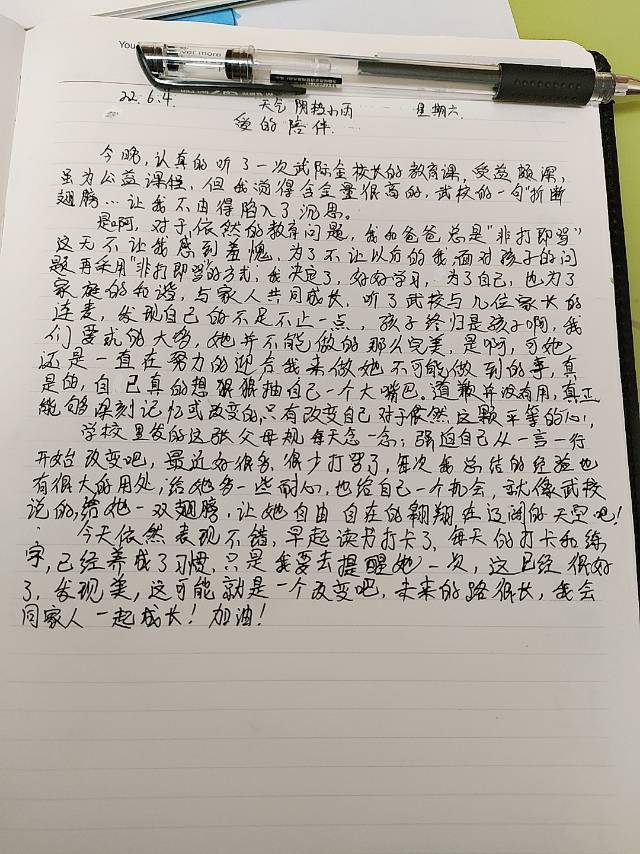 You
ver more
22.6.4. 天气 阴转小雨 星期六.
爱的陪伴.
今晚,认真的听了一次武际金校长的教育课,受益颇深,
虽为公益课程,但我觉得含金量很高的,武校的一句"折断
翅膀…让我不由得陷入了沉思。
是啊,对于依然的教育问题,我和爸爸总是"非打即骂"
这无不让我感到羞愧,为了不让以后的我面对孩子的问
题再采用"非打即骂"的方式;我决定了,好好学习,为了自己,也为了
家庭的和谐,与家人共同成长,听了武校与几位家长的
连麦,发现自己的不足不止一点,孩子终归是孩子啊,我
们要求的太多,她并不能做的那么完美,是啊,可她
还是一直在努力的迎合我来做她不可能做到的事,真
是的,自己真的想狠狠抽自己一个大嘴巴。道歉并没有用,真正
能够深刻记忆或改变的,只有改变自己对于依然这颗平等的心!,
学校里发的这张父母规每天念一念;强迫自己从一言一行
开始改变吧,最近好很多,很少打骂了,每次我总结的经验也
有很大的用处,给她多一些耐心,也给自己一个机会,就像武校
说的,给她一双翅膀,让她自由自在的翱翔在辽阔的天空吧!
今天依然表现不错,早起读书打卡了,每天的打卡和练
字,已经养成了习惯,只是我要去提醒她一次,这已经很好
了,发现美,这可能就是一个改变吧,未来的路很长,我会
同家人一起成长!加油!